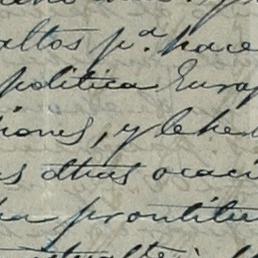 altos p.ª hace
politica Europ
iones, y le he
s otras ocaci
ha prontitu